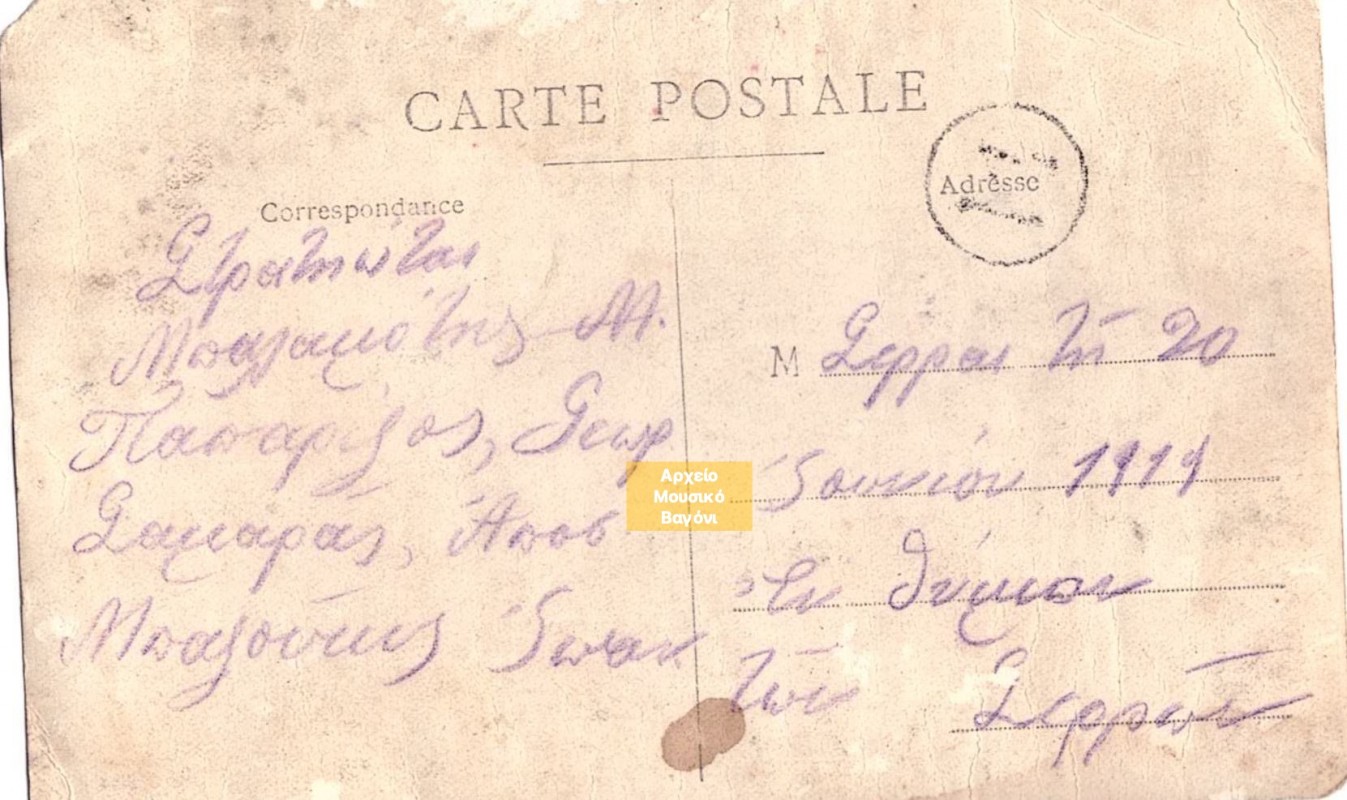 CARTE POSTALE
Correspondance
Adresse
Στρατιώται
Μπαλακιότης Μ.
Παπαρίζος, Γεωρ
Σαμαράς, Άποσ
Μπαζούκης Ἰωαν
M Σέρραι τῇ 20
Ἰουνίου 1919
Ἐν
τῶν Σερρῶν
Αρχείο
Μουσικό
Βαγόνι